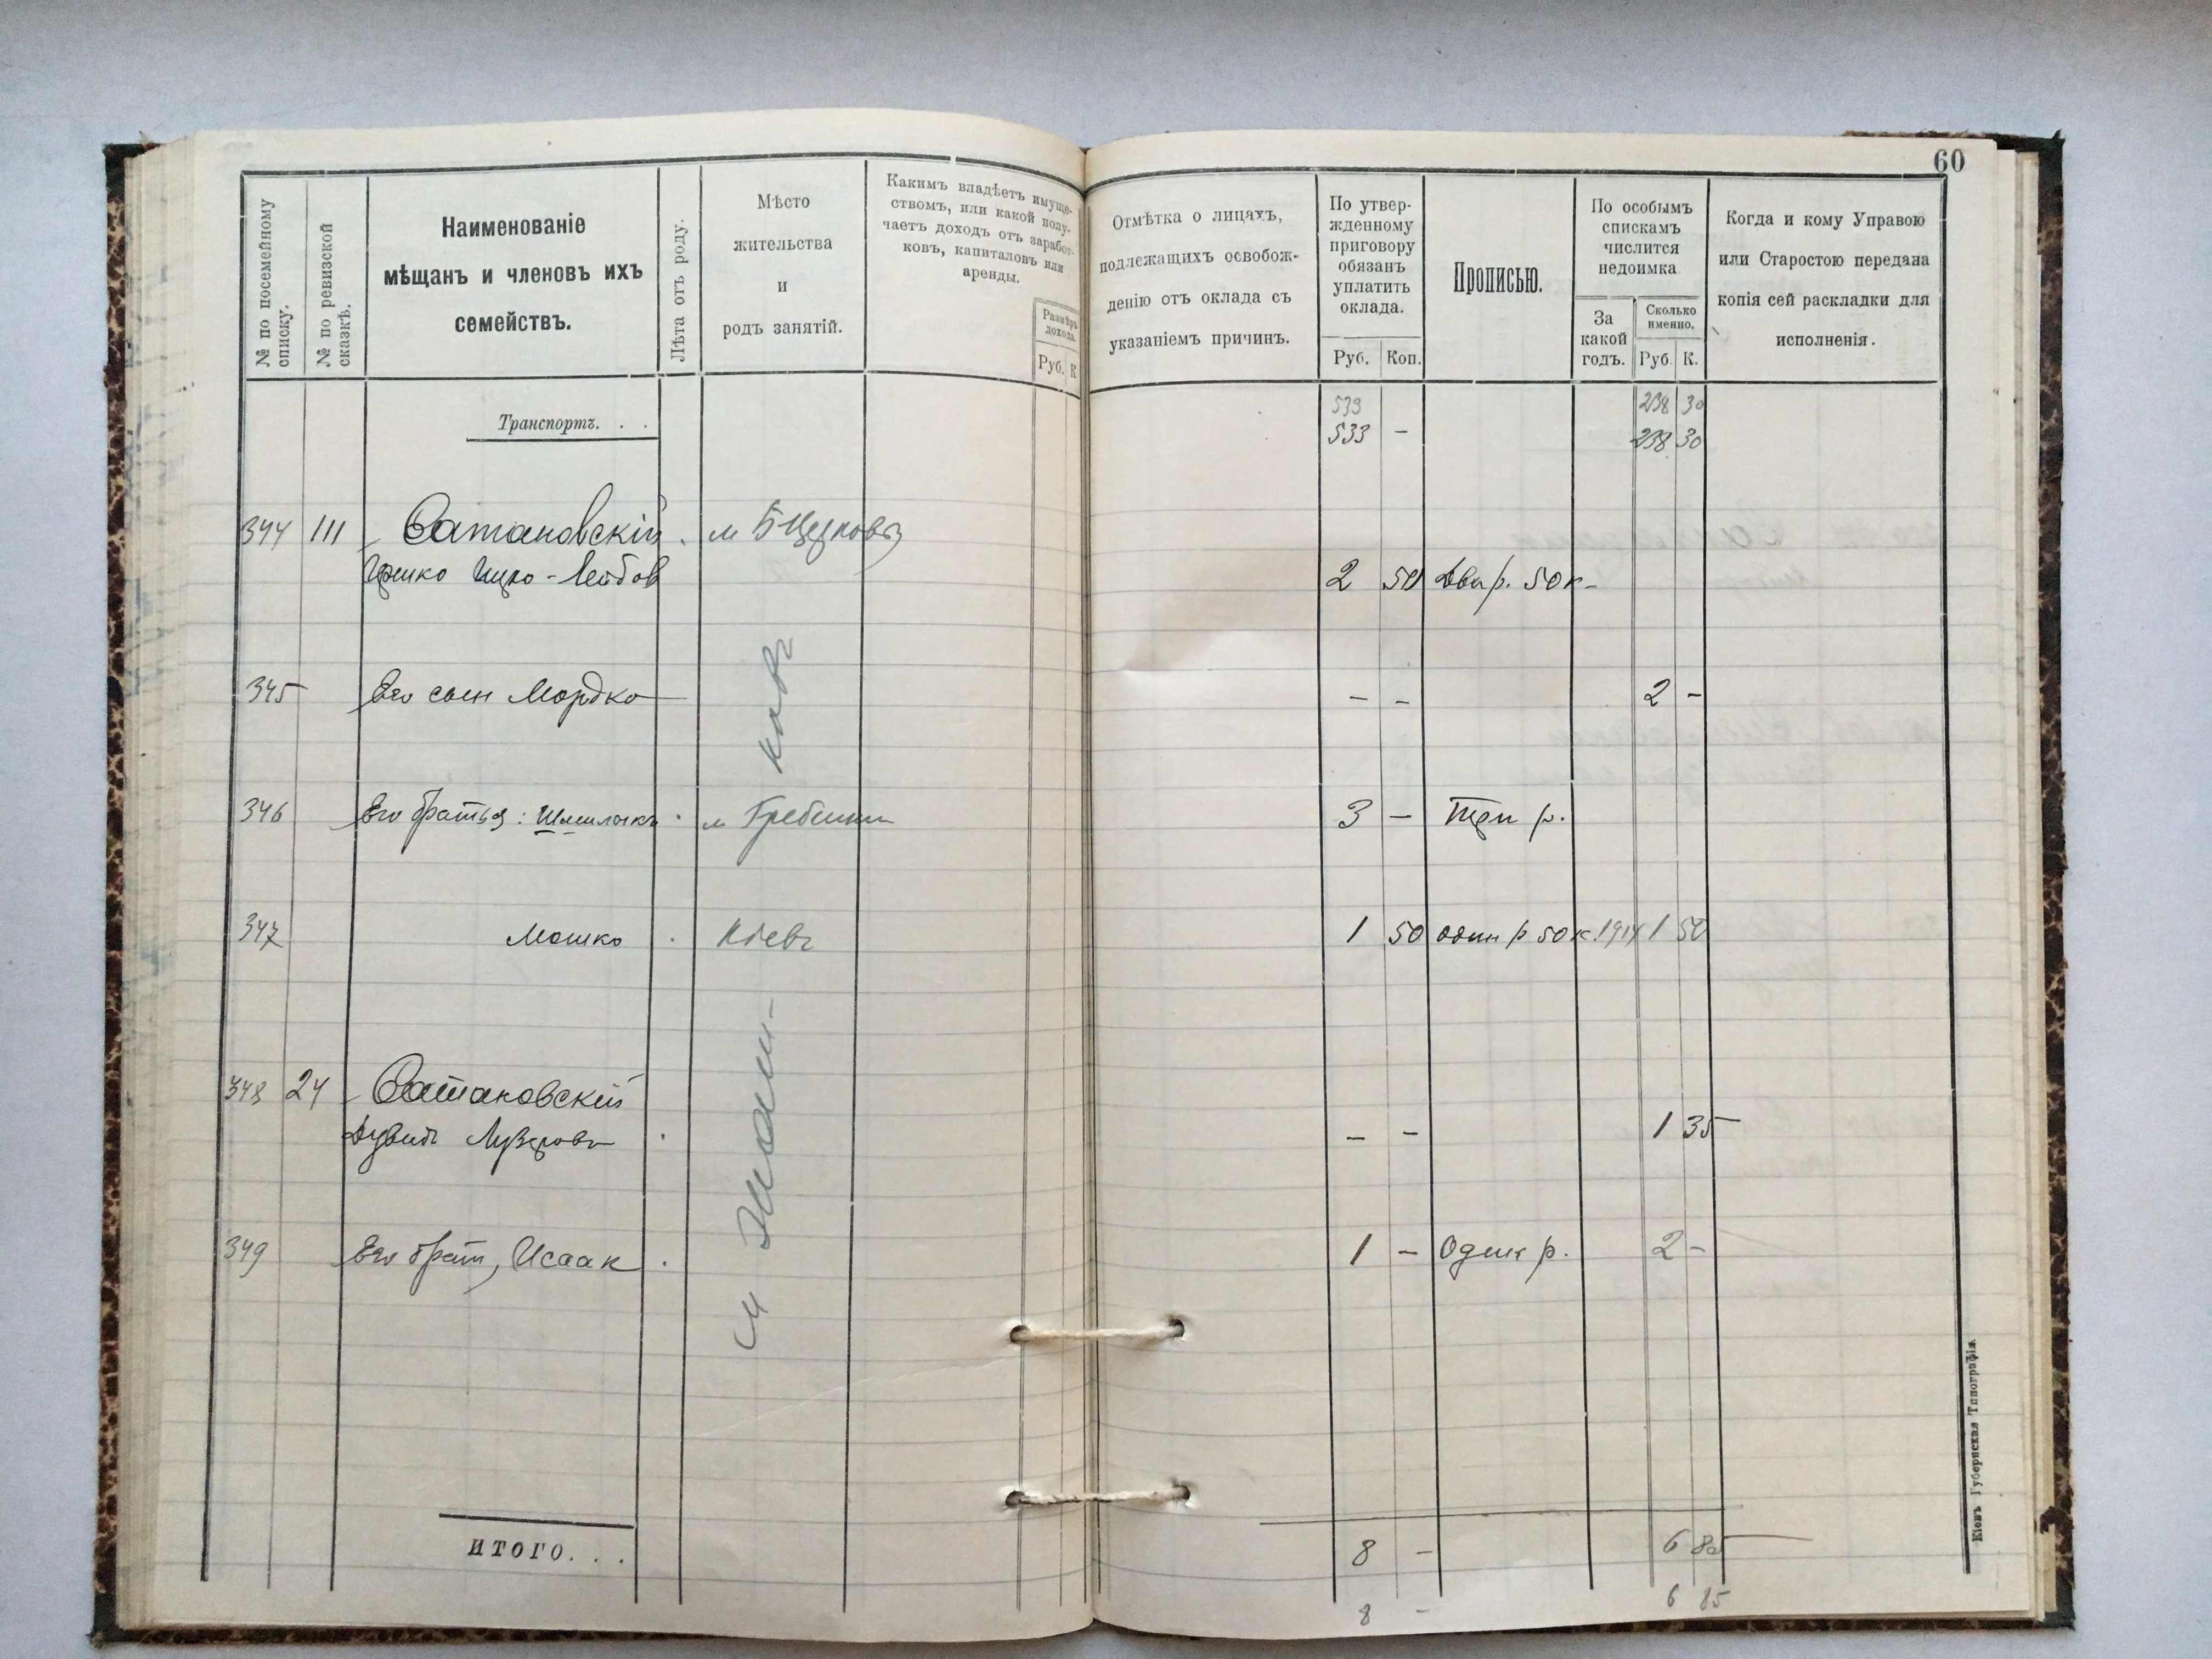 60
№ по посемейному
списку.
№ по ревизской
сказкѣ.
Наименованіе
мѣщанъ и членовъ ихъ
семействъ.
Лѣта отъ роду.
Мѣсто
жительства
и
родъ занятій.
Какимъ владѣетъ имуще-
ствомъ, или какой полу-
чаетъ доходъ отъ заработ-
ковъ, капиталовъ или
аренды.
Размѣръ
дохода.
Руб. К
Отмѣтка о лицахъ,
подлежащихъ освобож-
денію отъ оклада съ
указаніемъ причинъ.
По утвер-
жденному
приговору
обязанъ
уплатить
оклада.
Руб. Коп.
Прописью.
По особымъ
спискамъ
числится
недоимка
За
какой
годъ.
Сколько
именно.
Руб К.
Когда и кому Управою
или Старостою передана
копія сей раскладки для
исполненія.
533 238 30
Транспортъ. . . 533 - 238 30
344 111 Сатановскій м Б Церковъ
Ицко-Лейбов 2 50 Два р. 50 к-
345 Его сын Мордко - - 2 -
346 Его братья: м Гребинки 3 - Три р.
347 Мошко Кіевъ 1 50 один р 50 к. 1914 1 50
348 24 Сатановскій
Дувидъ - - 1 35
349 Его брат, Исаак 1 - Один р. 2 -
м
ИТОГО. . . 8 - 6 85
8 - 6 85
Кіевъ Губернская Типографія.